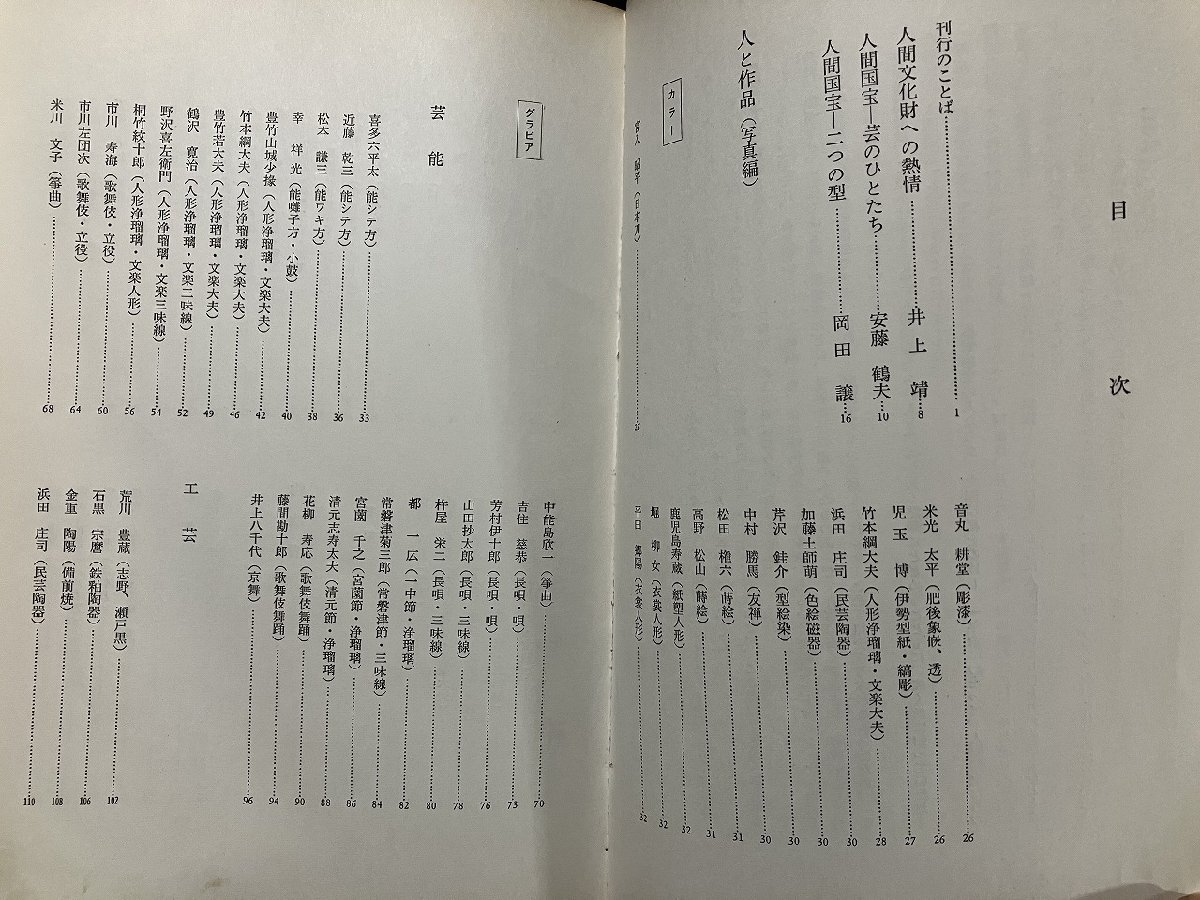 目次
刊行のことば 1
人間文化財への熱情 井上靖 8
人間国宝―芸のひとたち 安藤鶴夫 10
人間国宝―二つの型 岡田譲 16
人と作品（写真編）
カラー
（日本刀）
音丸耕堂（彫漆） 26
米光太平（肥後象嵌、透） 26
児玉博（伊勢型紙・縞彫） 27
竹本綱大夫（人形浄瑠璃・文楽大夫） 28
浜田庄司（民芸陶器） 30
加藤土師萌（色絵磁器） 30
芹沢銈介（型絵染） 30
中村勝馬（友禅） 30
松田権六（蒔絵） 31
高野松山（蒔絵） 31
鹿児島寿蔵（紙塑人形） 32
堀柳女（衣裳人形） 32
平田郷陽（衣裳人形） 32
グラビア
芸能
喜多六平太（能シテ方） 33
近藤乾三（能シテ方） 36
松本謙三（能ワキ方） 38
幸祥光（能囃子方・小鼓） 40
豊竹山城少掾（人形浄瑠璃・文楽大夫） 42
竹本綱大夫（人形浄瑠璃・文楽大夫） 46
豊竹若大夫（人形浄瑠璃・文楽大夫） 49
鶴沢寛治（人形浄瑠璃・文楽三味線） 52
野沢喜左衛門（人形浄瑠璃・文楽三味線） 54
桐竹紋十郎（人形浄瑠璃・文楽人形） 56
市川寿海（歌舞伎・立役） 60
市川左団次（歌舞伎・立役） 64
米川文子（箏曲） 68
中能島欣一（箏曲） 70
吉住慈恭（長唄・唄） 73
芳村伊十郎（長唄・唄） 76
山田抄太郎（長唄・三味線） 78
杵屋栄二（長唄・三味線） 80
都一広（一中節・浄瑠璃） 82
常磐津菊三郎（常磐津節・三味線） 84
宮薗千之（宮薗節・浄瑠璃） 86
清元志寿太夫（清元節・浄瑠璃） 88
花柳寿応（歌舞伎舞踊） 90
藤間勘十郎（歌舞伎舞踊） 94
井上八千代（京舞） 96
工芸
荒川豊蔵（志野、瀬戸黒） 102
石黒宗麿（鉄釉陶器） 106
金重陶陽（備前焼） 108
浜田庄司（民芸陶器） 110